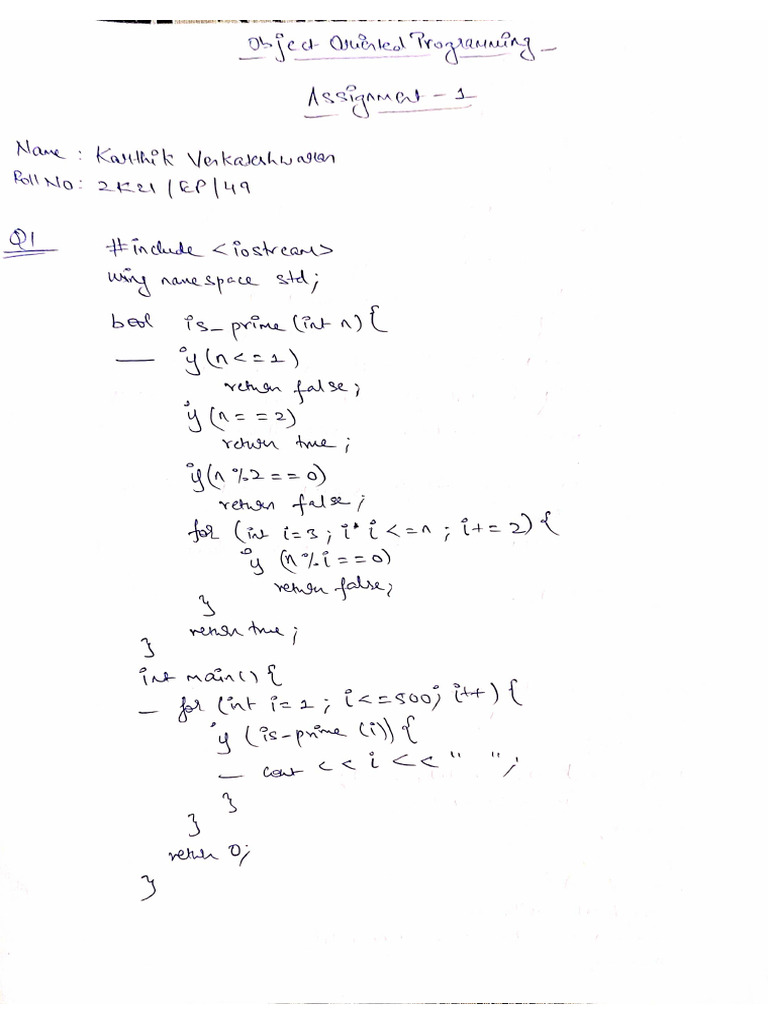 Object Oriented Programming
Assignment - 1
Name : Karthik Venkateshwaran
Roll No: 2K21/EP/49
Q1 #include <iostream>
using namespace std;
bool is_prime (int n) {
if (n <= 1)
return false;
if (n == 2)
return true;
if (n % 2 == 0)
return false;
for (int i=3; i*i <= n; i += 2) {
if (n % i == 0)
return false;
}
return true;
}
int main() {
for (int i=1; i<=500; i++) {
if (is-prime (i)) {
cout << i << " ";
}
}
return 0;
}